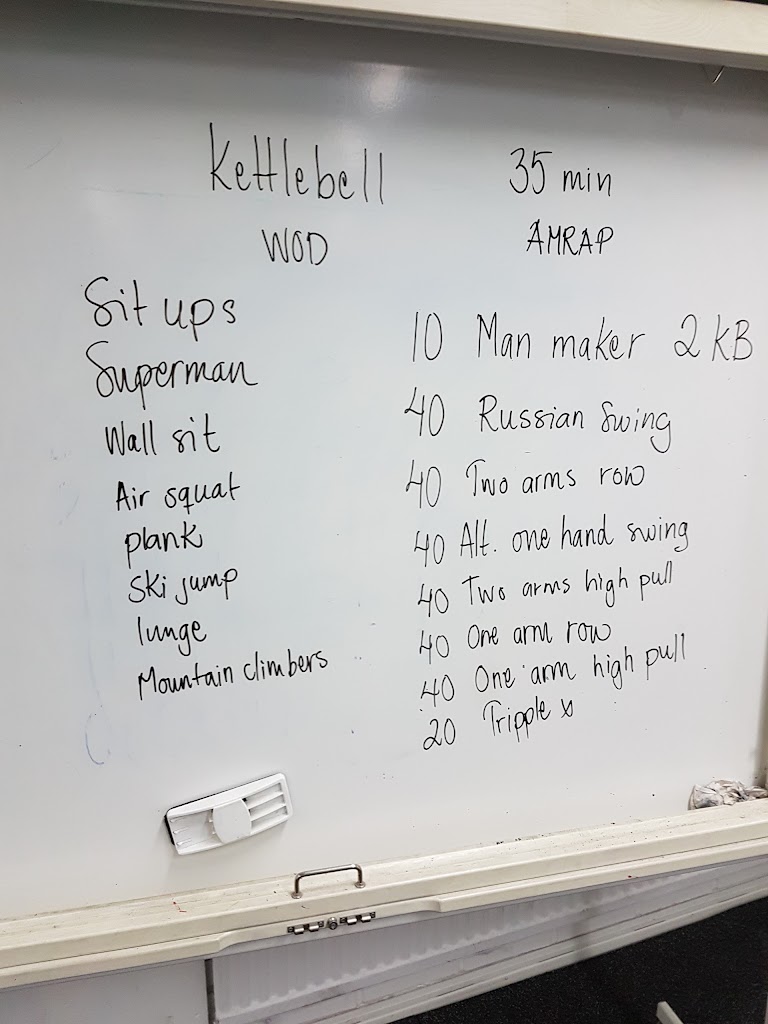 Kettlebell
WOD
35 min
AMRAP
Sit ups
Superman
Wall sit
Air squat
plank
Ski jump
lunge
Mountain climbers
10 Man maker 2 KB
40 Russian Swing
40 Two arms row
40 Alt. one hand swing
40 Two arms high pull
40 One arm row
40 One arm high pull
20 Tripple x